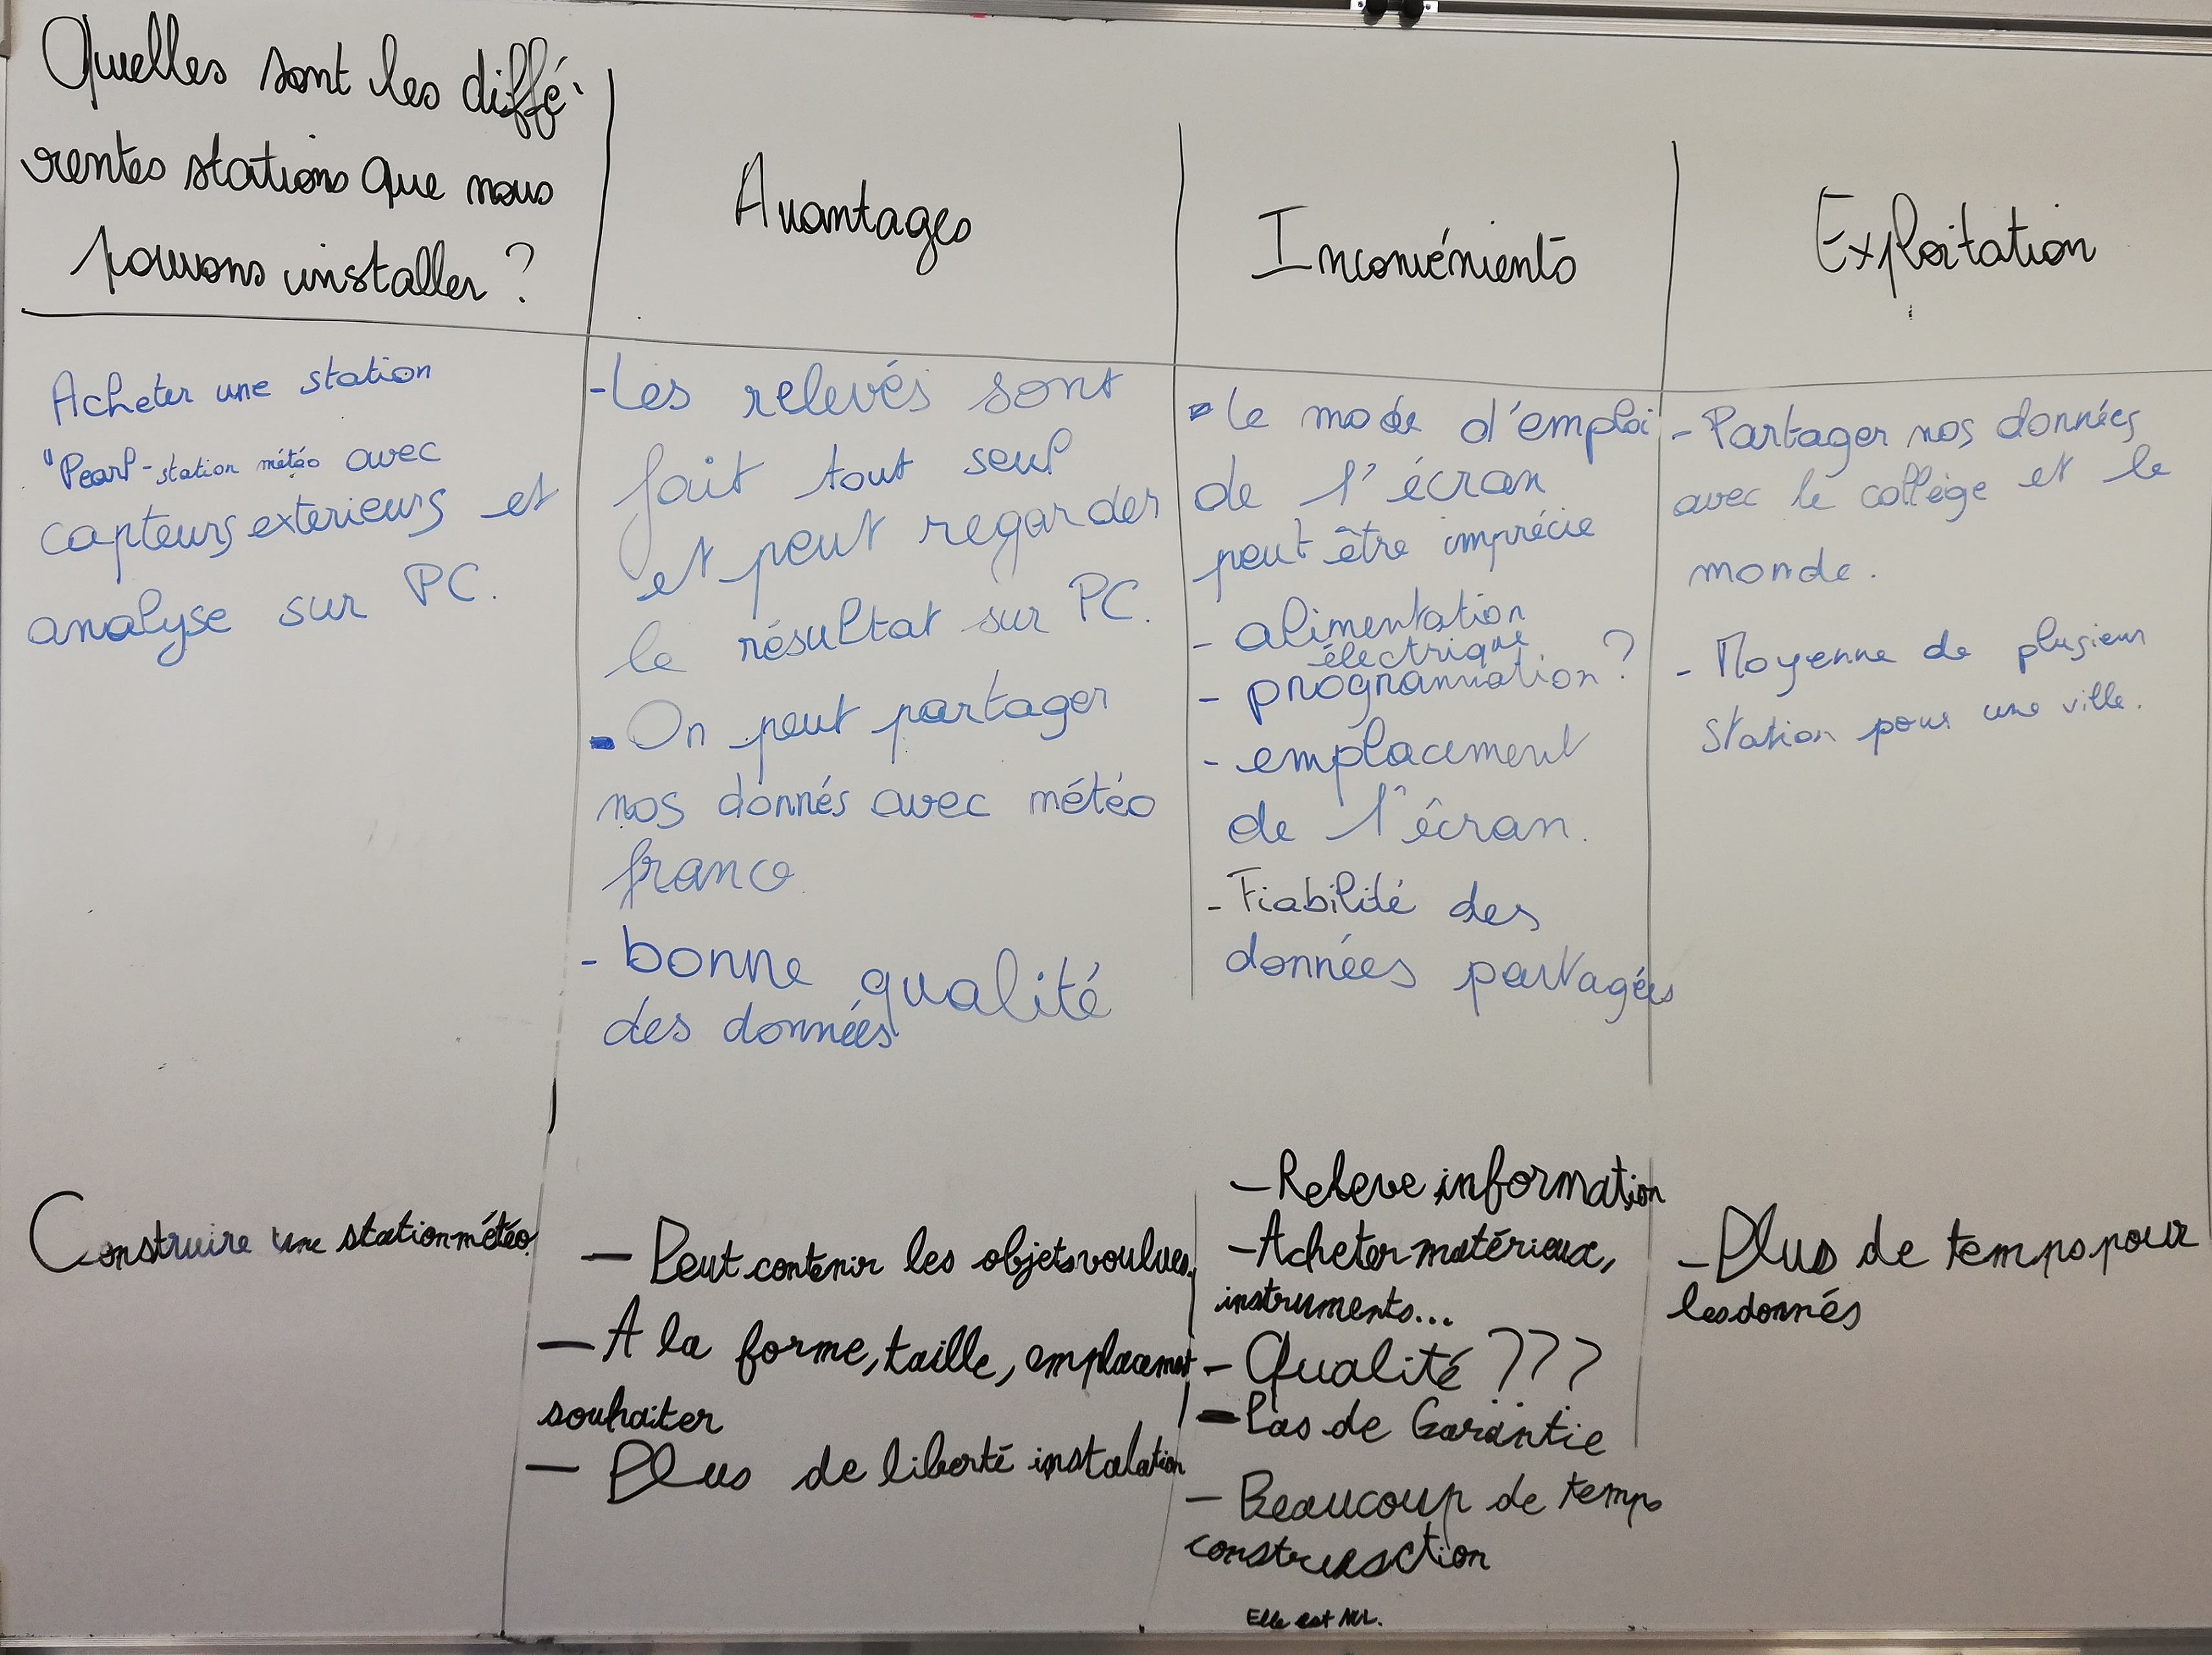 Quelles sont les diffé-
rentes stations que nous
pouvons installer ?
Avantages
Inconvénients
Exploitation
Acheter une station
"Pearl - station météo avec
capteurs exterieurs et
analyse sur PC.
- Les relevés sont
fait tout seul
et peut regarder
le résultat sur PC.
- On peut partager
nos donnés avec météo
france
- bonne qualité
des données
- le mode d'emploi
de l'écran
peut être imprécie
- alimentation
électrique
- programmation ?
- emplacement
de l'écran.
- Fiabilité des
données partagées
- Partager nos données
avec le collège et le
monde.
- Moyenne de plusieur
station pour une ville.
Construire une station météo
- Peut contenir les objets voulues.
- A la forme, taille, emplacement
souhaiter
- Plus de liberté instalation
- Releve information
- Acheter matérieux,
instruments...
- Qualité ???
- Pas de Garantie
- Beaucoup de temps
construction
Elle est NUL.
- Plus de temps pour
les donnés